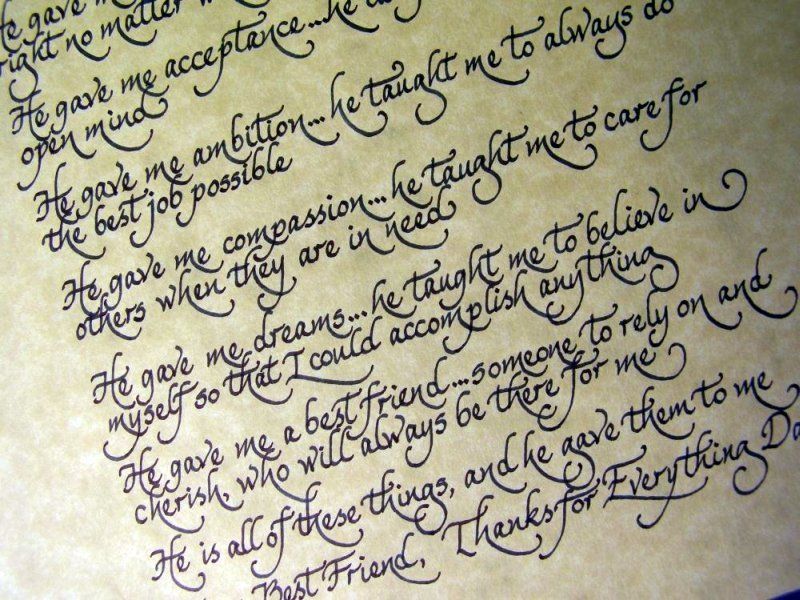 He gave me
right no matter
He gave me acceptance...he
open mind
He gave me ambition...he taught me to always do
the best job possible
He gave me compassion...he taught me to care for
others when they are in need
He gave me dreams...he taught me to believe in
myself so that I could accomplish anything
He gave me a best friend....someone to rely on and
cherish, who will always be there for me
He is all of these things, and he gave them to me
Best Friend, Thanks for Everything Da